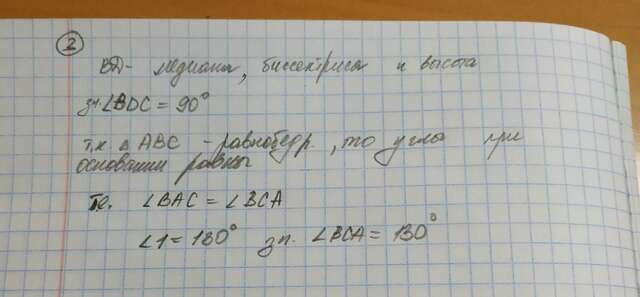 2
BD- медиана, биссектриса и высота
зн. ∠BDC = 90°
т.к. △ ABC - равнобедр., то угла при
основании равны
т.е. ∠BAC = ∠BCA
∠1 = 130° зн. ∠BCA = 130°